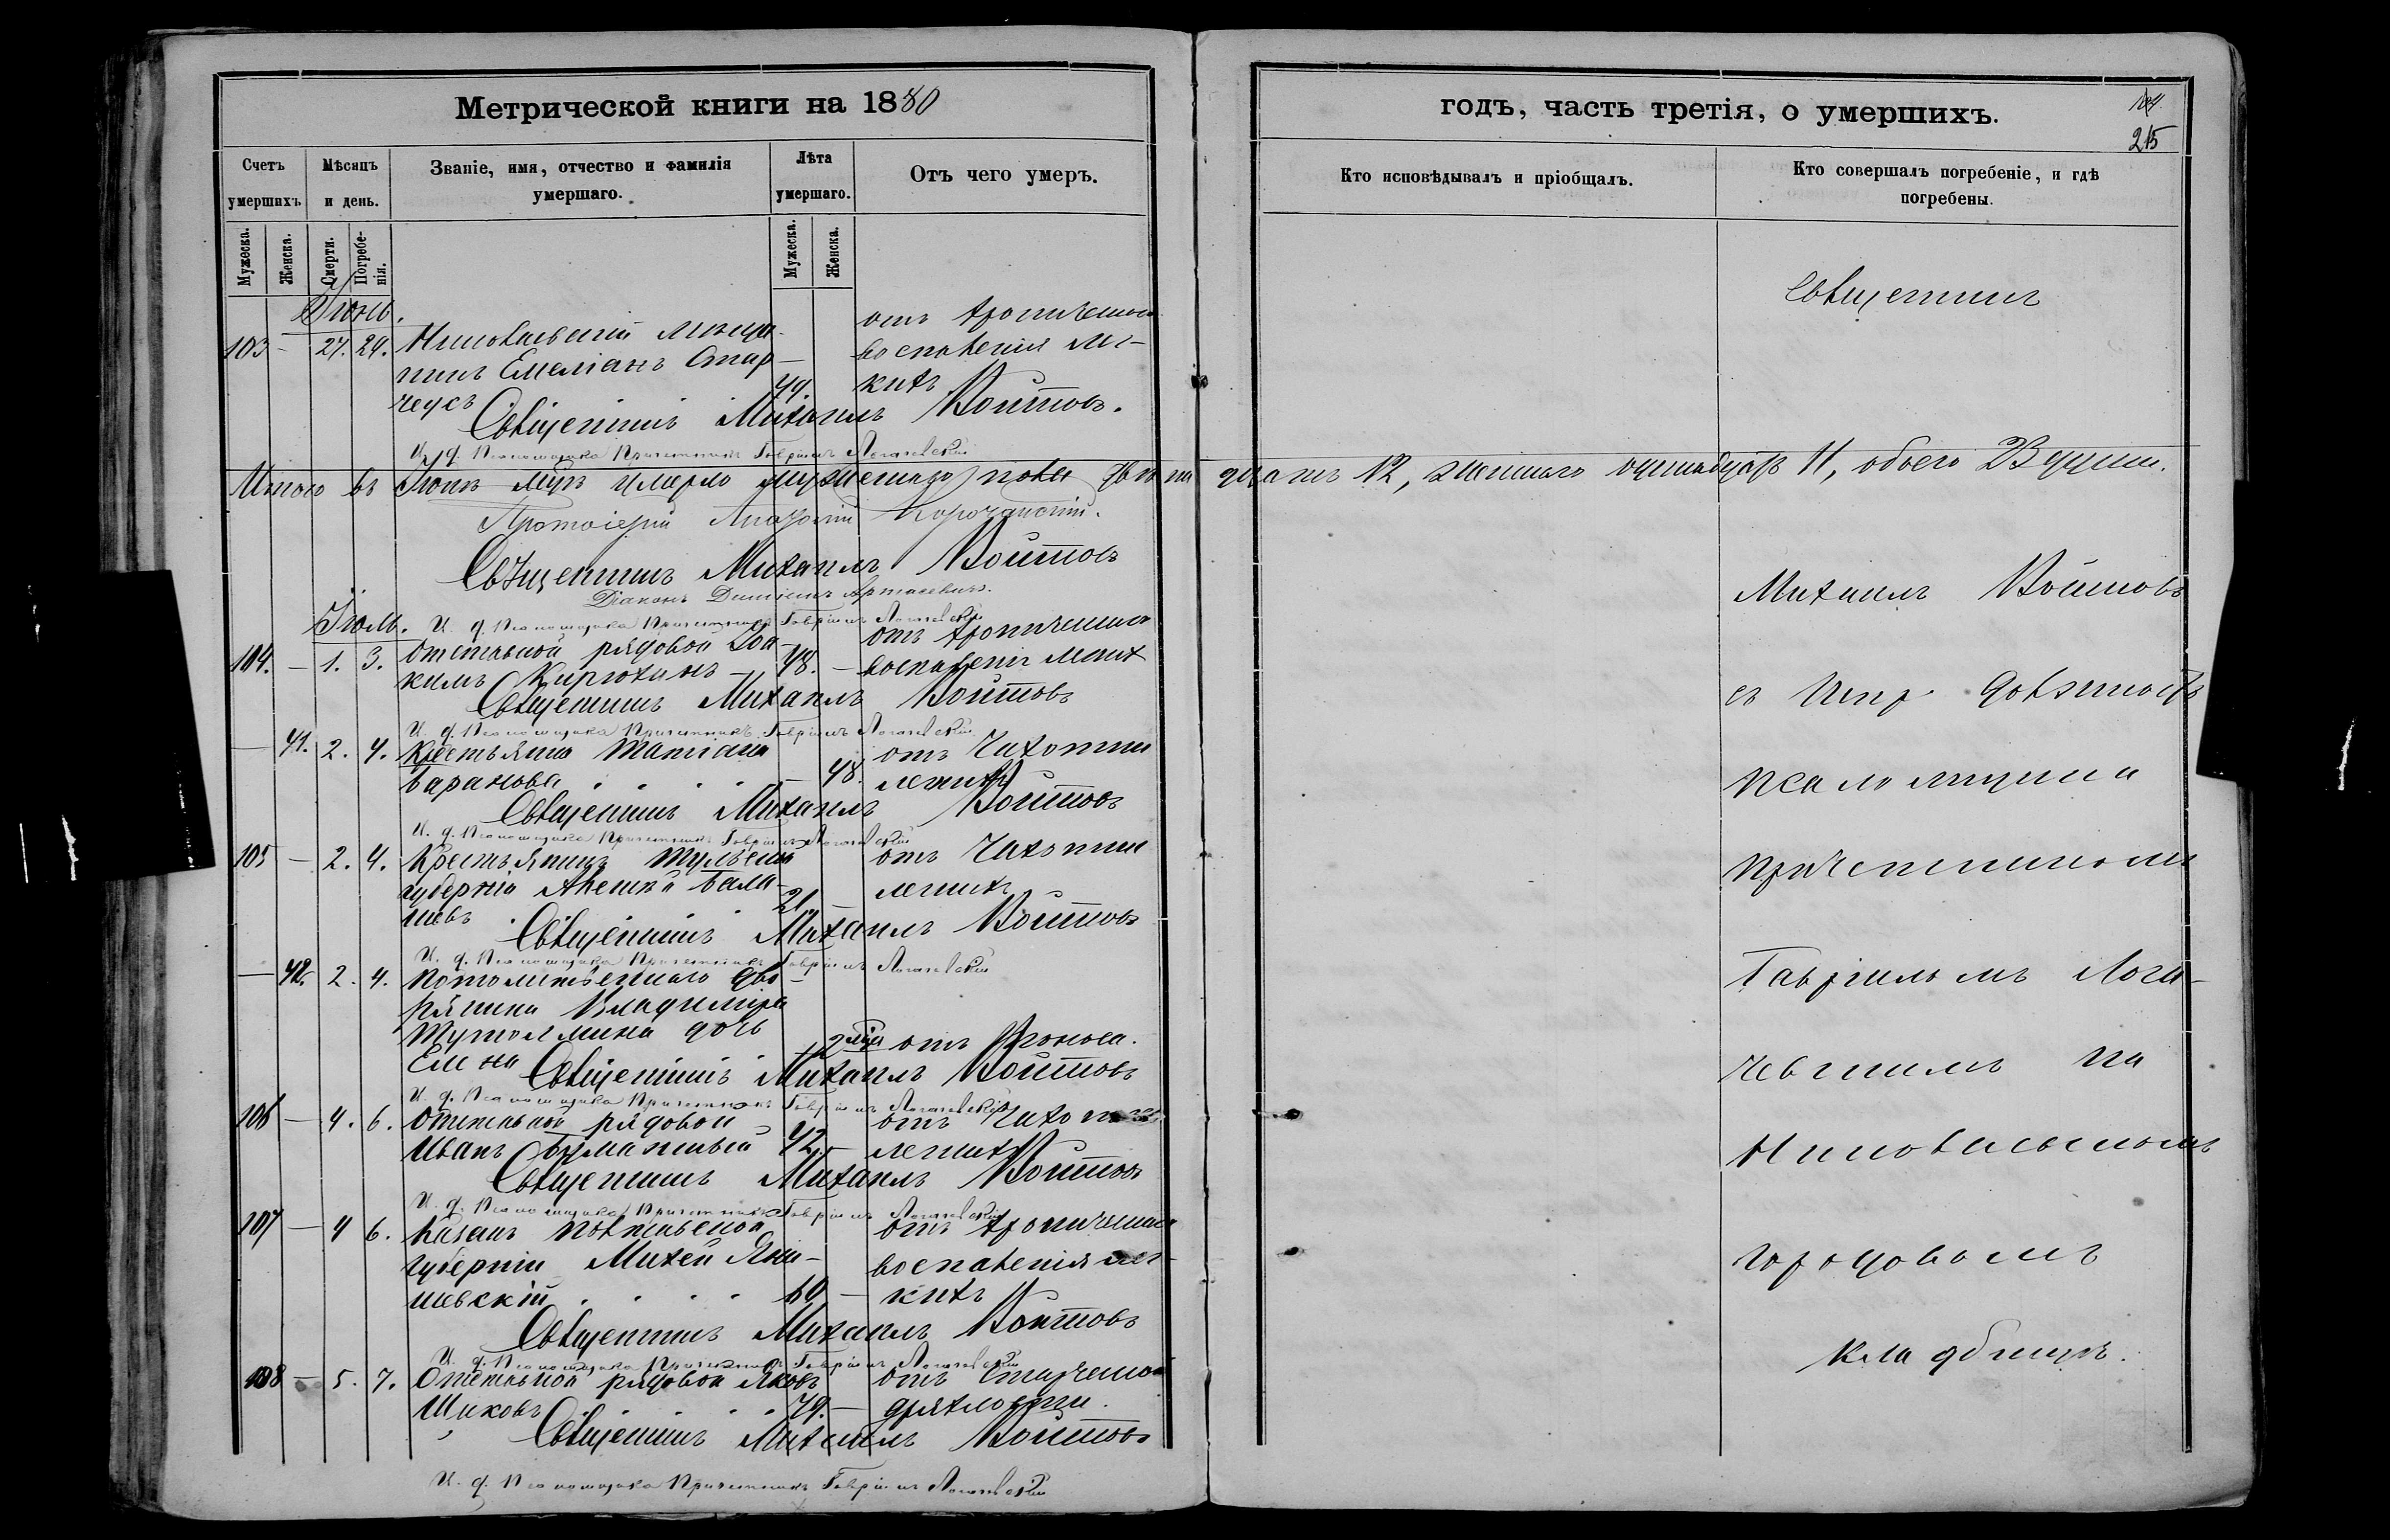 Метрической книги на 1880
Счетъ умершихъ
Мѣсяцъ и день.
Званіе, имя, отчество и фамилія умершаго.
Лѣта умершаго.
Отъ чего умеръ.
Мужеска.
Женска.
Смерти.
Погребе-
нія.
Мужеска.
Женска.
Іюнь.
103 — 27. 29. Николаевскій мѣща-
нинъ Емеліанъ Стар-
чеусъ 49.
отъ хроническаго
воспаленія лег-
кихъ
Священникъ Михаилъ Войтовъ.
И. д. Псаломщика Причетникъ Гавріилъ Логачевскій
Итого въ Іюнѣ м-цѣ умерло мужескаго пола двѣна дцать 12, женскаго одинадцать 11, обоего 23 души.
Протоіерей Корочанскій.
Священникъ Михаилъ Войтовъ
Діаконъ Артасевичъ.
И. д. Псаломщика Причетникъ Гавріилъ Логачевскій
Іюль.
104. — 1. 3. Отставной рядовой Іоа-
кимъ Кирюхинъ — 48. —
отъ хроническаго
воспаленія легких
Священникъ Михаилъ Войтовъ
И. д. Псаломщика Причетникъ Гавріилъ Логачевскій
— 41. 2. 4. Крестьянка Татіана
Баранова — 48.
отъ чахотки
легкихъ
Священникъ Михаилъ Войтовъ
И. д. Псаломщика Причетникъ Гавріилъ Логачевскій
105 — 2. 4. Крестьянинъ Тульской
губерніи Алексѣй Бала-
шевъ 21. —
отъ чахотки
легкихъ
Священникъ Михаилъ Войтовъ
И. д. Псаломщика Причетникъ Гавріилъ Логачевскій
— 42. 2. 4. Потомственнаго дво-
рянина Владиміра
Тутолмина дочь
Елена
отъ поноса.
Священникъ Михаилъ Войтовъ
И. д. Псаломщика Причетникъ Гавріилъ Логачевскій
106 — 4. 6. Отставной рядовой
Иванъ 42. —
отъ чахотки
легкихъ
Священникъ Михаилъ Войтовъ
И. д. Псаломщика Причетникъ Гавріилъ Логачевскій
107 — 4 6. Казакъ Полтавской
губерніи Михей Яни-
шевскій 60 —
отъ хроническаго
воспаленія лег-
кихъ
Священникъ Михаилъ Войтовъ
И. д. Псаломщика Причетникъ Гавріилъ Логачевскій
108 — 5. 7. Отставной рядовой Яковъ
Шиховъ 79. —
отъ старческой
дряхлости.
Священникъ Михаилъ Войтовъ
И. д. Псаломщика Причетникъ Гавріилъ Логачевскій
годъ, часть третія, о умершихъ.
215
Кто исповѣдывалъ и пріобщалъ.
Кто совершалъ погребеніе, и гдѣ
погребены.
Священникъ
Михаилъ Войтовъ
съ Испр. должность
псаломщика
причетникомъ
Гавріиломъ Лога-
чевскимъ на
Николаевскомъ
городовомъ
кладбищѣ.